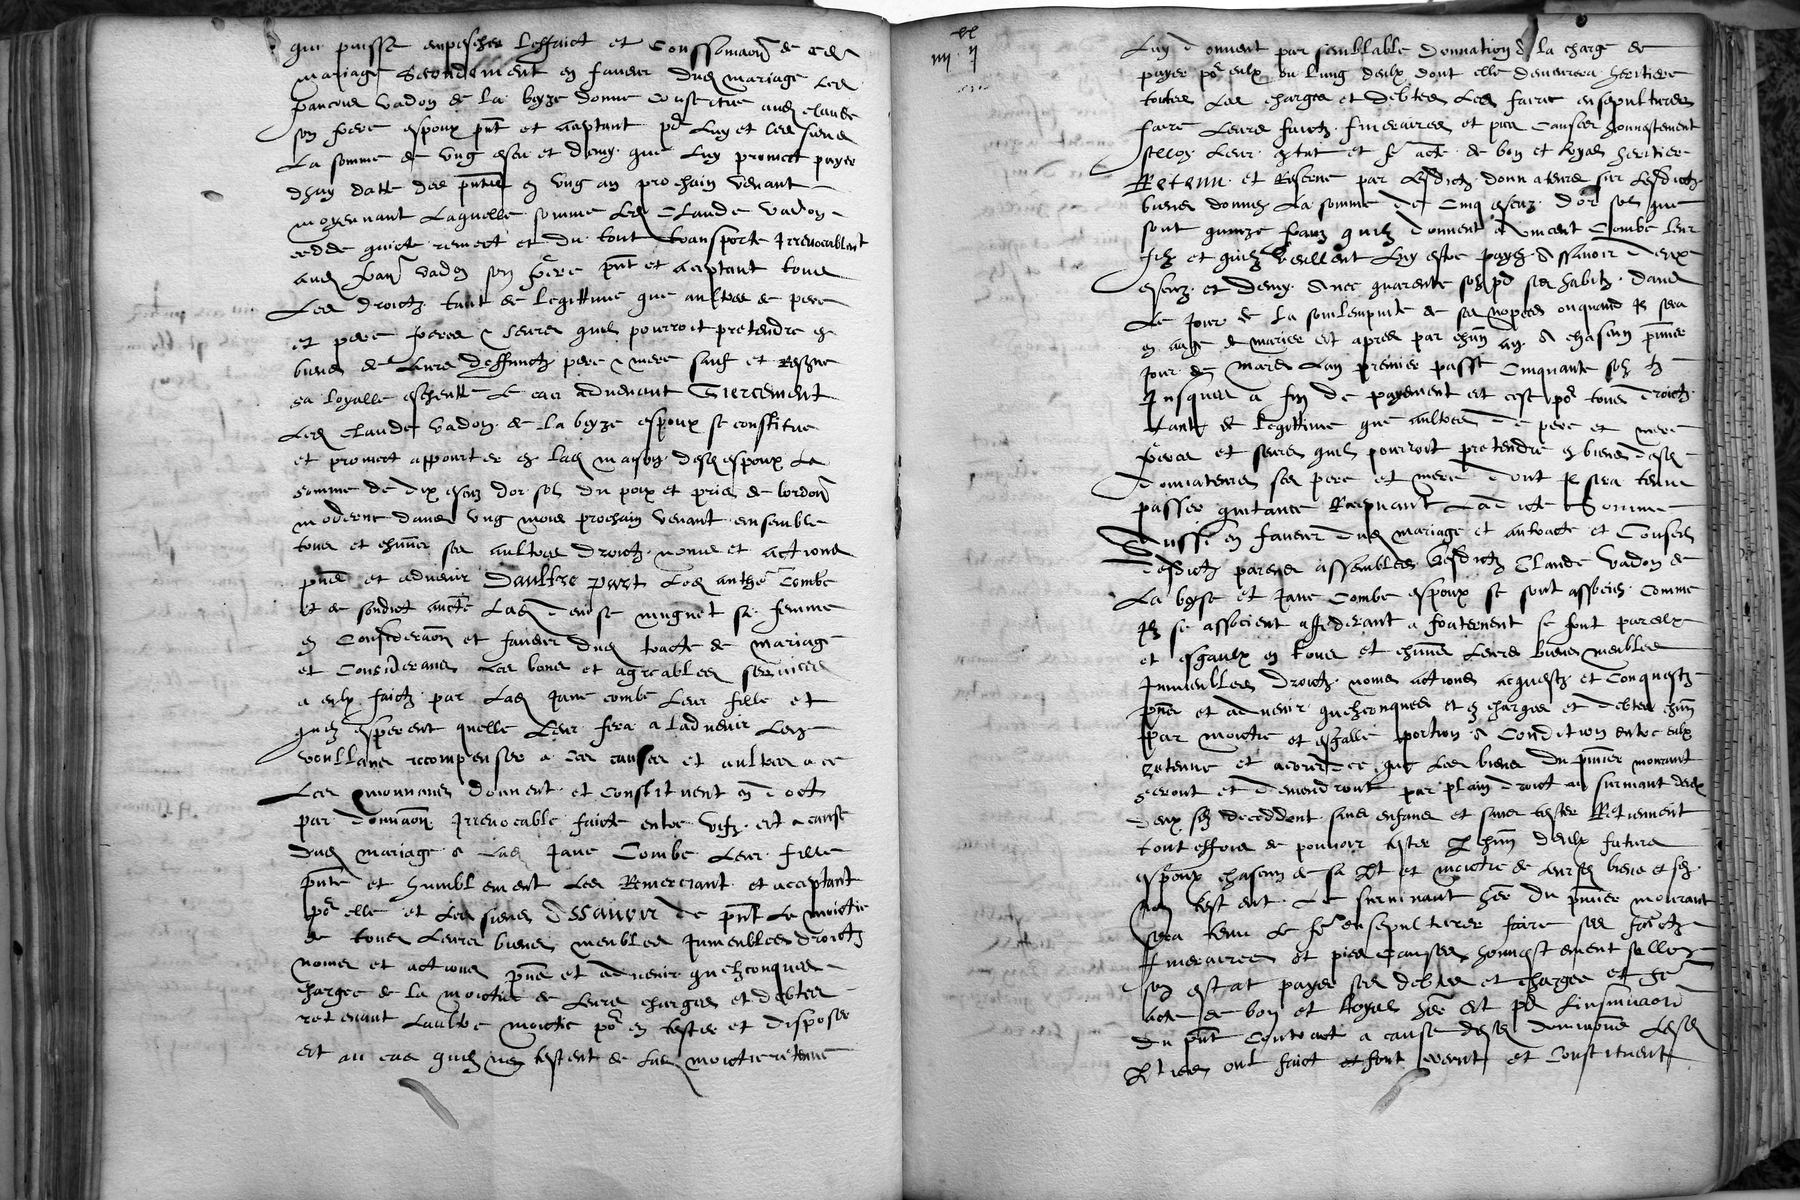 qui puisse empescher l'effaict et conssomaon de ced
mariage Secondement en faveur dud mariage led
francois vadon de la beyze donne constitue aud claude
son frere espoux pnt et aceptant po luy et les siens
La somme de ung escu et demy que luy promect payer
dhuy datte des pntes en ung an prochain venant
moyennant laquelle somme led Claude vadon
cedde quicte remect et du tout transporte irrevocablemt
aud fran vadon son frere pnt et aceptant tous
Les droictz tant de legittime que aultres de pere
et mere freres & seurs quil pourroit pretendre es
biens de leurs deffunctz pere & mere sauf et reserve
sa loyalle escheutte le cas advenant Tiercement
Led Claude vadon de la beyze espoux se constitue
et promect appourter en lad maison desd espoux la
somme de dix escuz dor sol du poix et pris de lordon
moderne dans ung mois prochain venant ensemble
tous et chmes ses aultres droictz noms et actions
pns et advenir Daultre part led anthe Combe
et de sondict aucte lad denise mignot sa femme
en Consideraon et faveur dud traicte de mariage
et Considerans les bons et agreables services
a eulx faictz par lad Jane combe leur fille et
quilz esperent quelle leur fera a ladvenir Les
voullans recompenser a ces causes et aultres a ce
Les mouvans donnent et constituent en dot
par donnaon irrevocable faicte entre vifz et a cause
dud mariage a lad Jane Combe leur fille
pnte et humblement les Remerciant et acceptant
po elle et les siens Assavoir de pnt la moictie
de tous leurs biens meubles immeubles droictz
noms et actions pns et advenir quelzconques
charges de la moictie de leurs charges et debtes
retenant laultre moictie po en tester et disposer
et au cas quilz nen testent de lad moictie retenue
xx
iiii ii
Luy donnent par semblable donnation a la charge de
payer po eulx ou lung deulx dont elle demeurera heritiere
toutes les charges et debtes les faire ensepulturer
faire leurs fraictz funeraires et pies causes honnestement
selon leur estat et fe acte de bon et loyal heritier
Retenu et Reserve par lesdictz donnateurs sur lesdictz
biens donnez la somme de cinq escuz dor sol que
sont quinze frans quilz donnent a vincent Combe leur
filz et quilz veullent luy estre payez Assavoir deux
escuz et demy avec quarente solz pd ses habitz dans
Le Jour de la sollempnite de ses nopces ou quand il sera
en aage de marier et apres par chun an a chascun pmier
Jour de mars Lan premier passe Cinquante solz tz
Jusques a fin de payement et cest po tous droictz
tant de legittime que aultres de pere et mere
freres et seurs quil pourroit pretendre es biens desd
donnateurs ses pere et mere dont il sera tenu
passer quitance Recepvant ladicte Somme
Aussi en faveur dud mariage et autorite et Conseil
desdictz parens assembles Lesdictz Claude vadon de
La beyse et Jane Combe espoux se sont associes comme
ilz se associent affrerant a fraternent se font pareulx
et esgaulx en tous et chmes leurs biens meubles
Immeubles droictz noms actions acquestz et Conquestz
pns et advenir quelzconques et es charges et debtes chun
par moictie et esgalle portion A Condition entre eulx
retenue et acordee que les biens du pmier mourant
seront et demeureront par plain droict au survivant deulx
deux silz deceddent sans enfans et sans tester Retiennent
toutesfois de pouvoir tester Et chun deulx futurs
espoux chascun de sa Rt et moictie de leursd biens et silz
nen testent Le survivant her du pmier mourant
sera tenu le fe ensepulturer faire ses fraictz
funeraires et pies causes honnestement sellon
son estat payer ses debtes et charges et fe
acte de bon et loyal her Et po linsinuaon
du pnt Contraict a cause desd donnaons lesd
Rties ont faict et font creent et Constituent